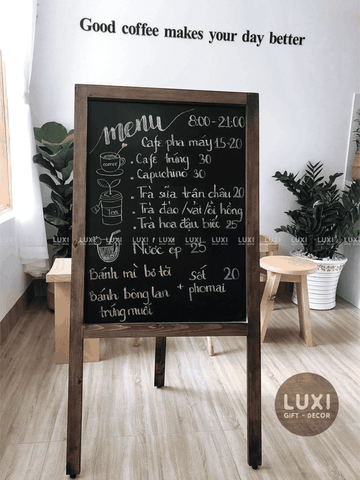 Good coffee makes your day better
menu 8:00-21:00
Cafe pha máy 15-20
. Cafe trứng 30
. Capuchino 30
coffee
. Trà sữa trân châu 20
. Trà đào /vải/ổi hồng
. Trà hoa đậu biếc 25
Tea
Nước ép 25
Bánh mì bơ tỏi sốt 20
Bánh bông lan + phomai
trứng muối
LUXI
GIFT - DECOR